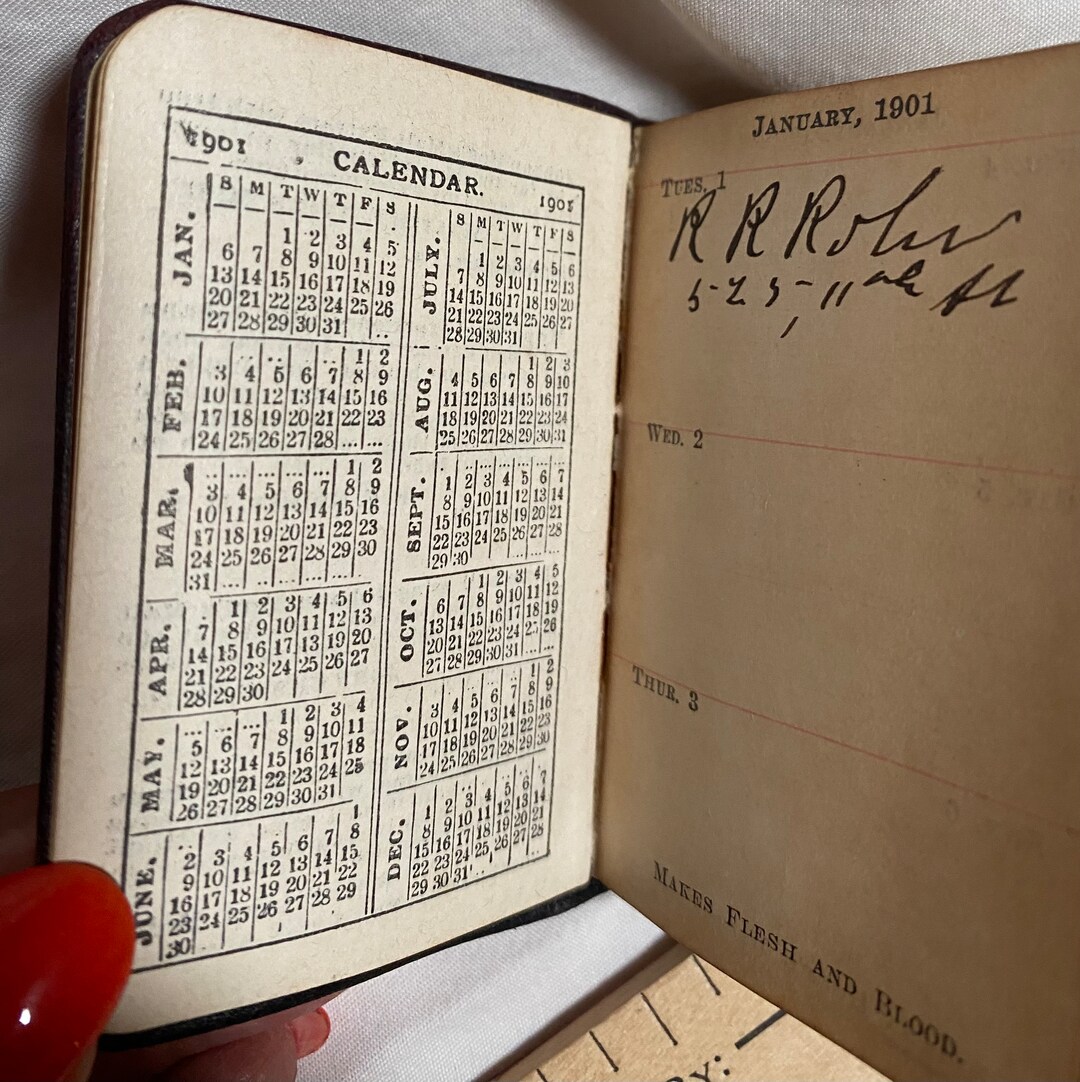 1901 CALENDAR. 1901
S M T W T F S
JAN.
1 2 3 4 5
6 7 8 9 10 11 12
13 14 15 16 17 18 19
20 21 22 23 24 25 26
27 28 29 30 31 ... ..
FEB.
.. .. .. .. .. 1 2
3 4 5 6 7 8 9
10 11 12 13 14 15 16
17 18 19 20 21 22 23
24 25 26 27 28 ... ...
MAR.
... ... ... ... ... 1 2
3 4 5 6 7 8 9
10 11 12 13 14 15 16
17 18 19 20 21 22 23
24 25 26 27 28 29 30
31 ... ... ... ... ...
APR.
... 1 2 3 4 5 6
7 8 9 10 11 12 13
14 15 16 17 18 19 20
21 22 23 24 25 26 27
28 29 30
MAY.
... ... ... 1 2 3 4
5 6 7 8 9 10 11
12 13 14 15 16 17 18
19 20 21 22 23 24 25
26 27 28 29 30 31
JUNE.
.. .. .. .. .. .. 1
2 3 4 5 6 7 8
9 10 11 12 13 14 15
16 17 18 19 20 21 22
23 24 25 26 27 28 29
30
S M T W T F S
JULY.
1 2 3 4 5 6
7 8 9 10 11 12 13
14 15 16 17 18 19 20
21 22 23 24 25 26 27
28 29 30 31
AUG.
1 2 3
4 5 6 7 8 9 10
11 12 13 14 15 16 17
18 19 20 21 22 23 24
25 26 27 28 29 30 31
SEPT.
... ... ... ... ... ... ...
1 2 3 4 5 6 7
8 9 10 11 12 13 14
15 16 17 18 19 20 21
22 23 24 25 26 27 28
29 30 ... ... ... ...
OCT.
1 2 3 4 5
6 7 8 9 10 11 12
13 14 15 16 17 18 19
20 21 22 23 24 25 26
27 28 29 30 31 ... ...
NOV.
.. .. .. .. .. 1 2
3 4 5 6 7 8 9
10 11 12 13 14 15 16
17 18 19 20 21 22 23
24 25 26 27 28 29 30
DEC.
1 2 3 4 5 6 7
8 9 10 11 12 13 14
15 16 17 18 19 20 21
22 23 24 25 26 27 28
29 30 31 ..
JANUARY, 1901
TUES. 1
R R R
525, 11 St
WED. 2
THUR. 3
MAKES FLESH AND BLOOD.
Y: